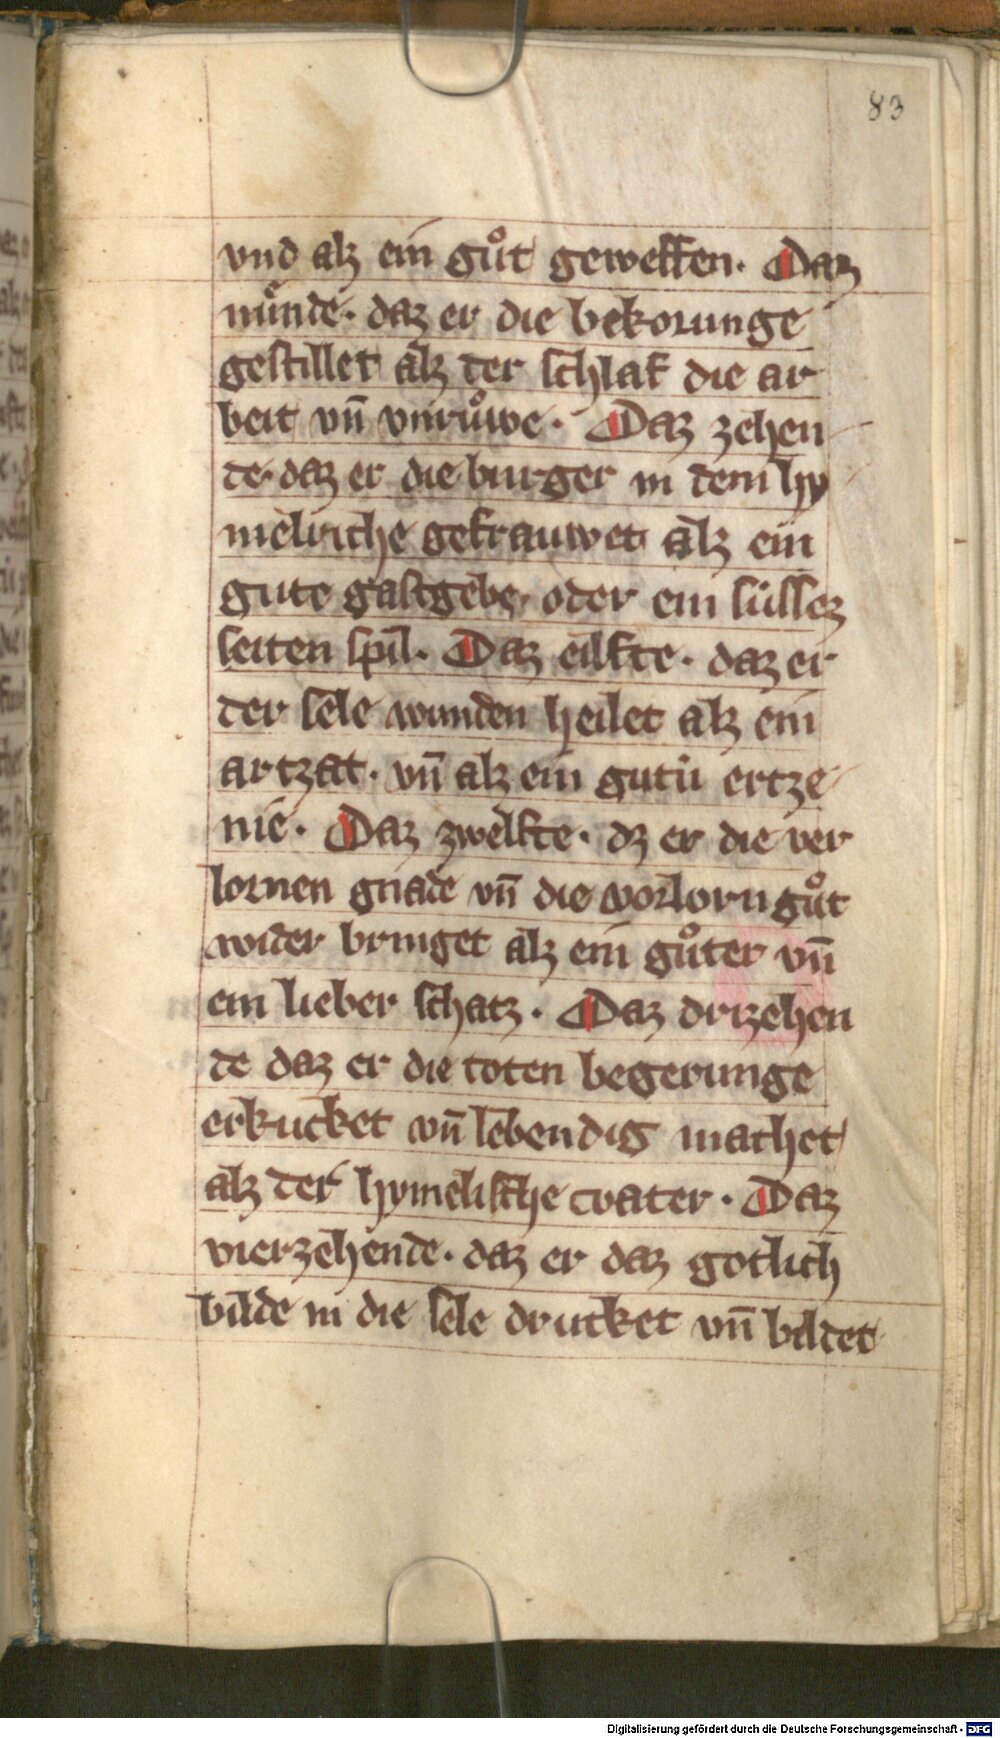 83
vnd alz ein gůt geweffen. Daz
nu̍nde. daz er die bekorunge
gestillet alz der schlaf die ar
beit vn̄ vnrůwe. Daz zehen
de. daz er die burger in dem hy
melriche gefrauwet alz ein
gute gastgebe, oder ein su̍ssez
seiten spil. Daz eilfte. daz er
der sele wunden heilet alz ein
artzat. vn̄ alz ein gutu̍ ertze
nie. Daz zwelfte. dz er die ver
lornen gnade vn̄ die vorlorn gůt
wider bringet alz ein gůter vn̄
ein lieber schatz. Daz drizehen
de daz er die toten begerunge
erkucket vn̄ lebendig machet
alz der hymelische vater. Daz
vierzehende. daz er daz gotlich
bilde in die sele drucket vn̄ bildet
Digitalisierung gefördert durch die Deutsche Forschungsgemeinschaft - DFG